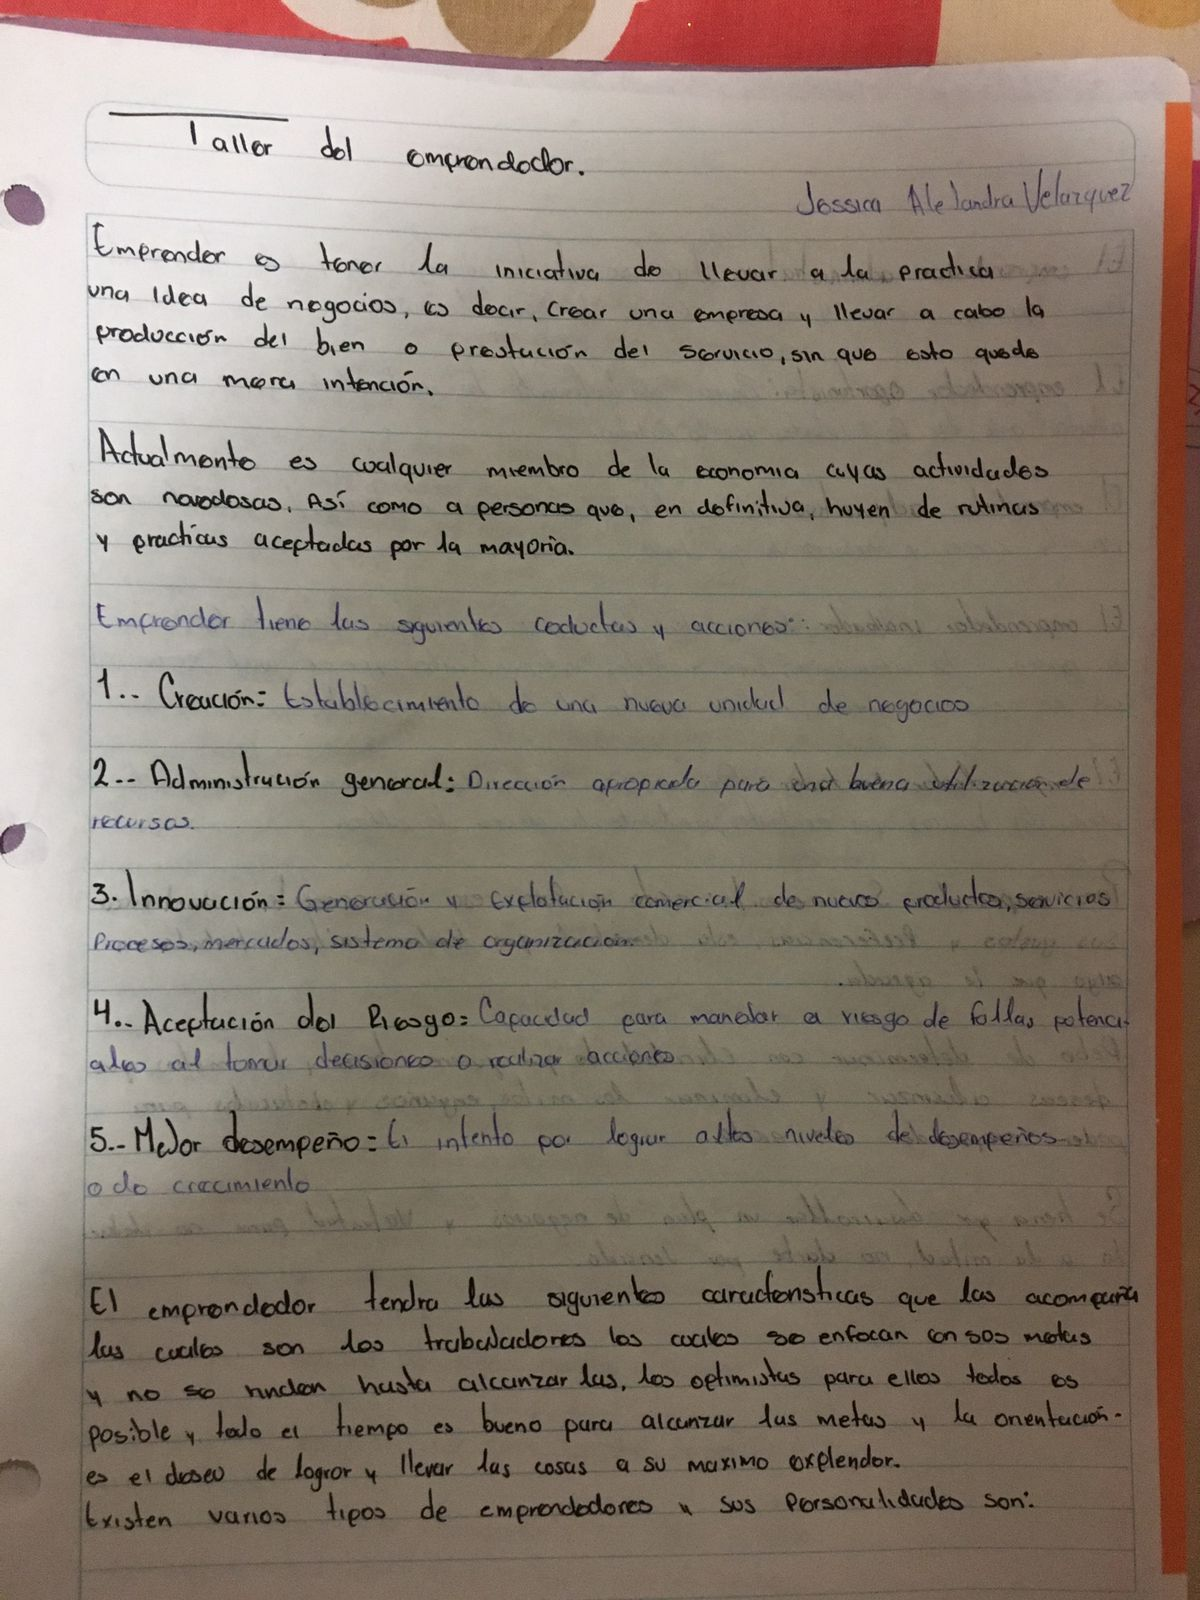 Taller del emprendedor.
Jessica Alejandra Velazquez
Emprender es tener la iniciativa de llevar a la practica
una idea de negocios, es decir, crear una empresa y llevar a cabo la
producción del bien o prestación del servicio, sin que esto quede
en una mera intención.
Actualmente es cualquier miembro de la economia cuyas actividades
son novedosas. Así como a personas que, en definitiva, huyen de rutinas
y practicas aceptadas por la mayoria.
Emprender tiene las siguientes coductas y acciones:
1.- Creación: Establecimiento de una nueva unidad de negocios
2.- Administración general: Dirección apropiada para una buena utilización de
recursos.
3. Innovación: Generación y explotación comercial de nuevos productos, servicios
Procesos, mercados, sistema de organización.
4.- Aceptación del Riesgo: Capacidad para manejar el riesgo de fallas potenci-
ales al tomar decisiones o realizar acciones
5.- Mejor desempeño: El intento por lograr altos niveles de desempeños
o de crecimiento
El emprendedor tendra las siguientes caracteristicas que las acompaña
las cuales son los trabajadores los cuales se enfocan en sos metas
y no se rinden hasta alcanzar las, los optimistas para ellos todos es
posible y todo el tiempo es bueno para alcanzar las metas y la orientación-
es el deseo de lograr y llevar las cosas a su maximo explendor.
Existen varios tipos de emprendedores y sus Personalidades son: